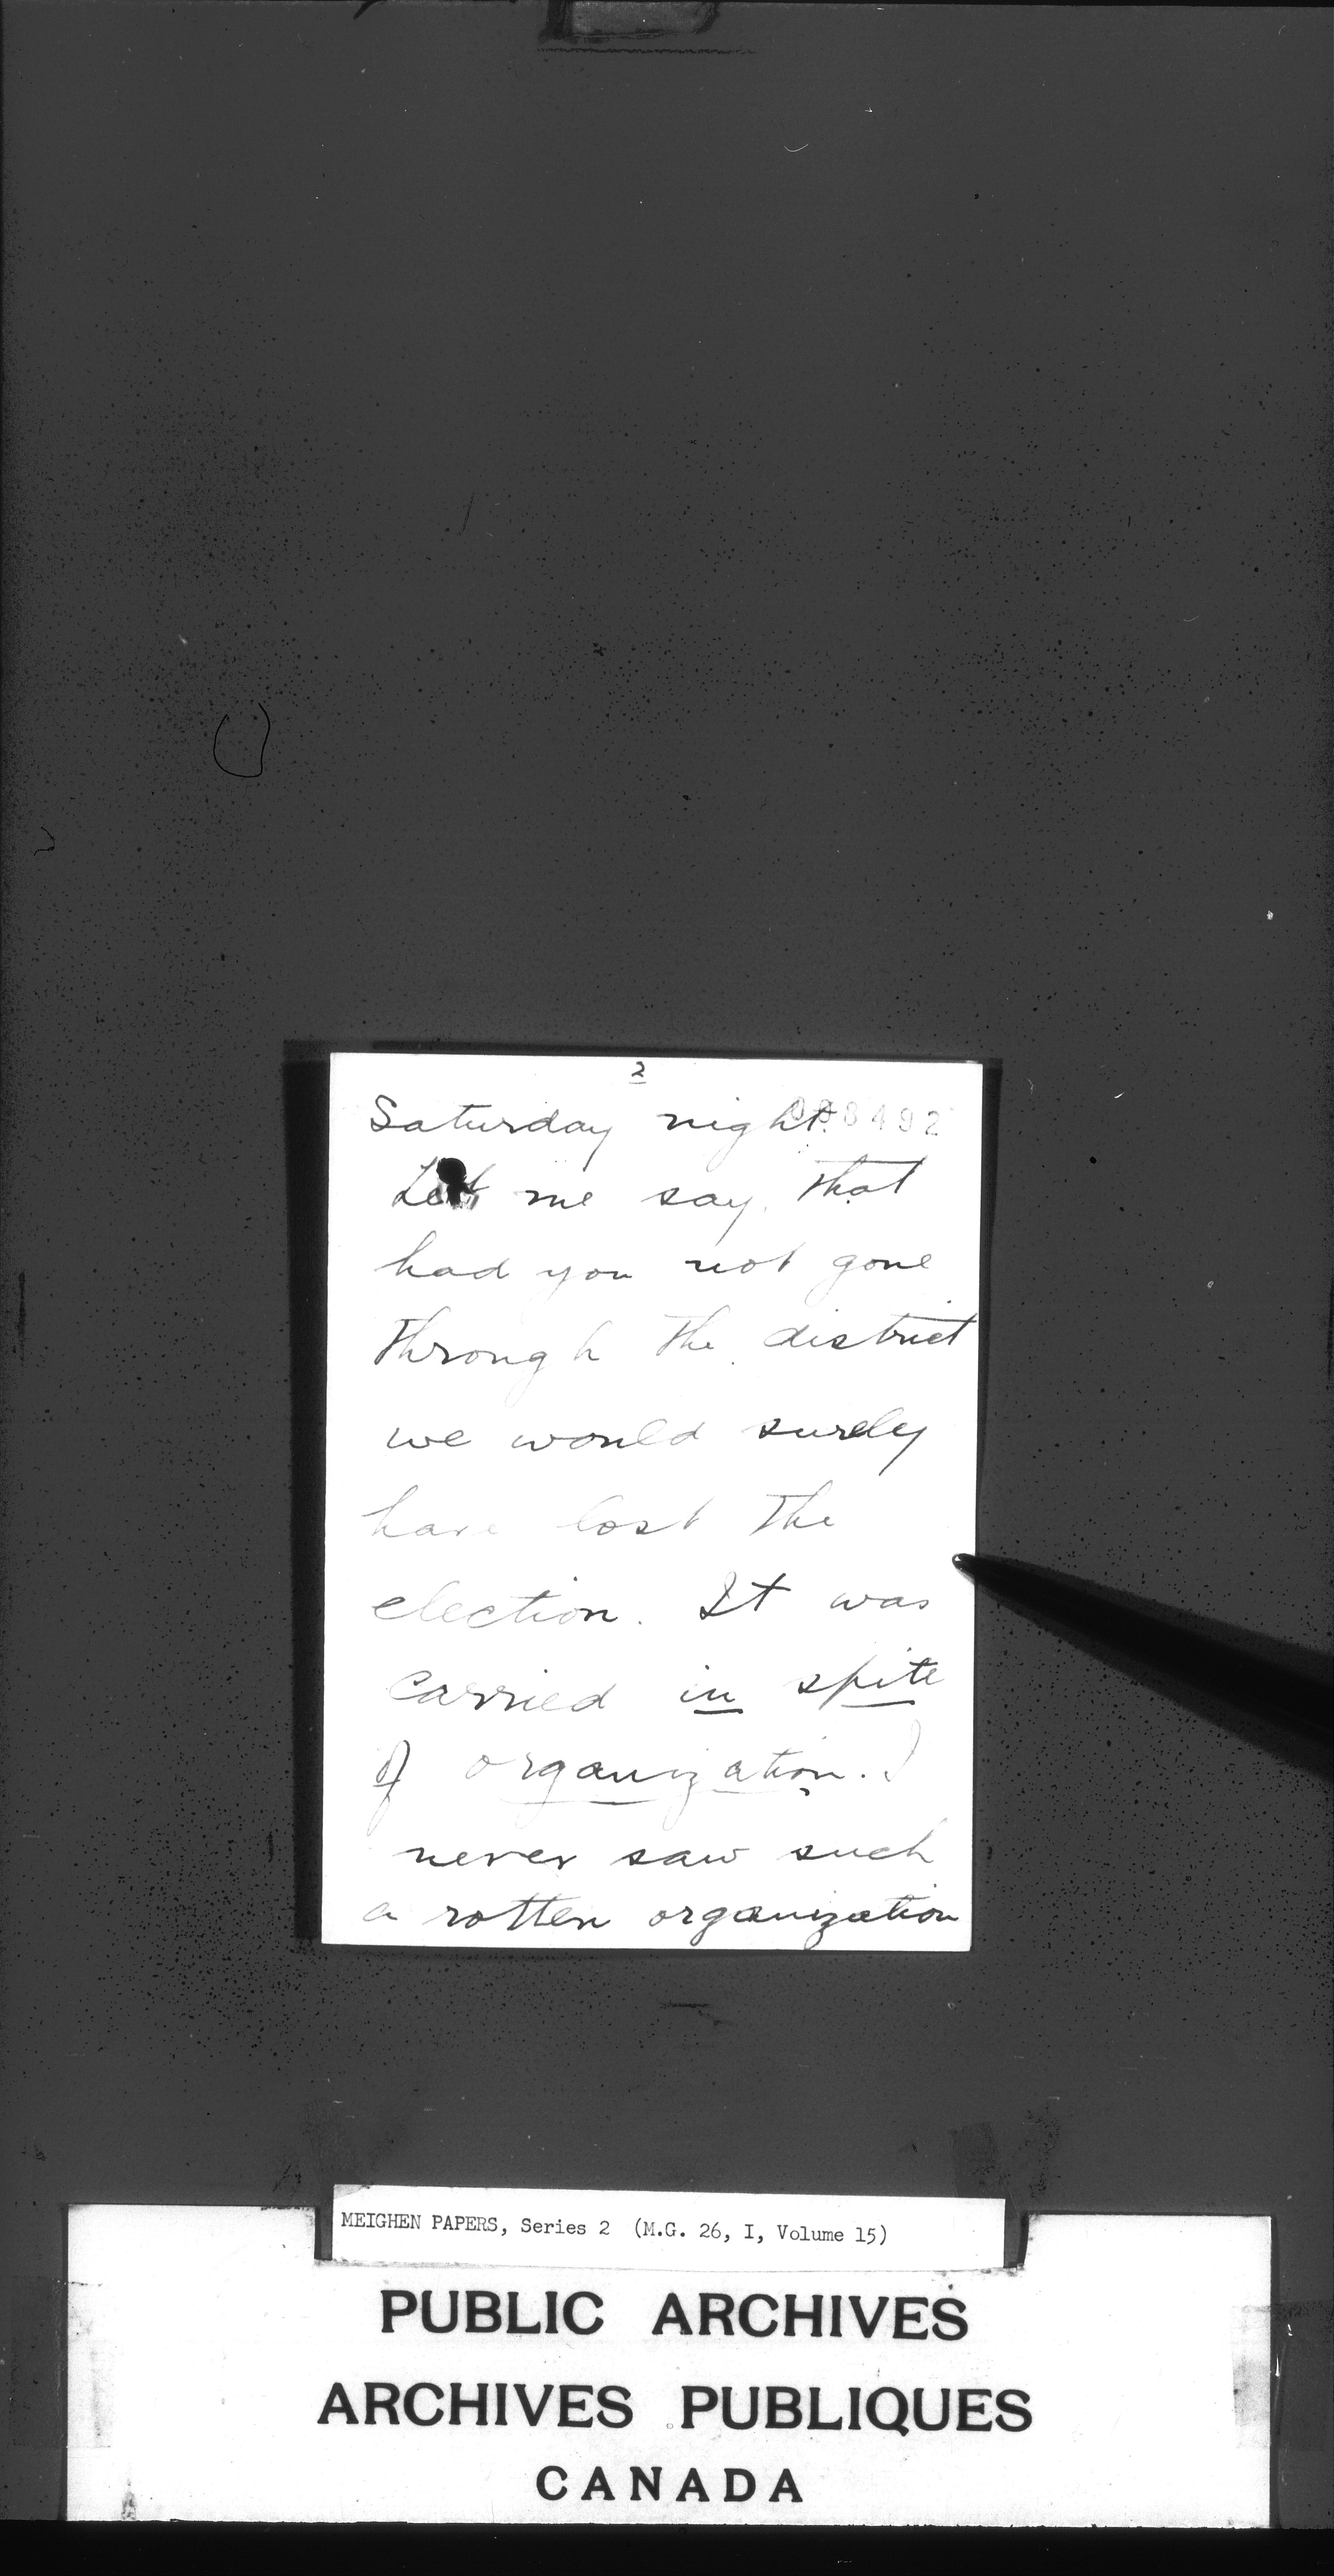 2
Saturday night. 008492
Let me say, that
had you not gone
through the district
we would surely
have lost the
election. It was
carried in spite
of organization. I
never saw such
a rotten organization
MEIGHEN PAPERS, Series 2 (M.G. 26, I, Volume 15)
PUBLIC ARCHIVES
ARCHIVES PUBLIQUES
CANADA